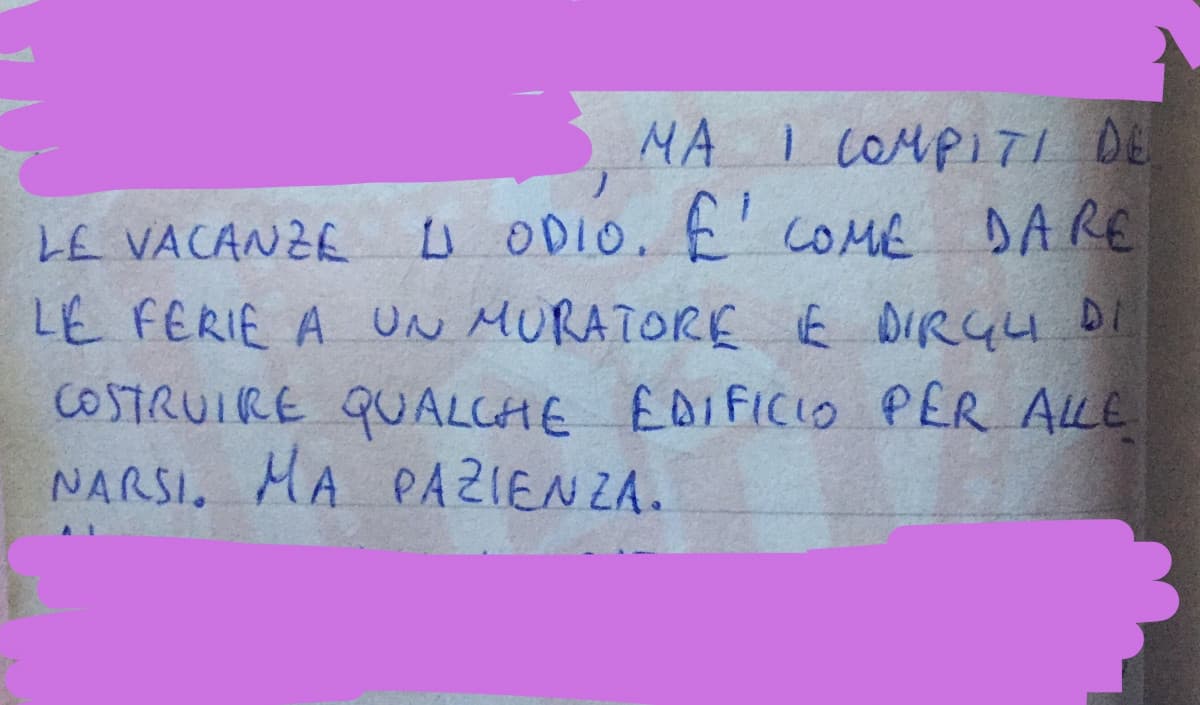 , MA I COMPITI DE
LE VACANZE LI ODIO. E' COME DARE
LE FERIE A UN MURATORE E DIRGLI DI
COSTRUIRE QUALCHE EDIFICIO PER ALLE
NARSI. MA PAZIENZA.